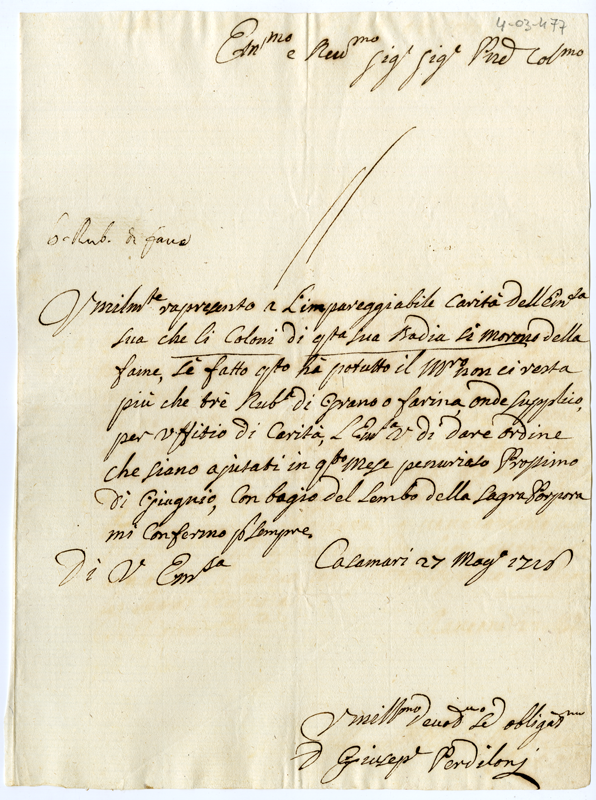 4-03-477
Em^mo e Rev^mo Sig^r Sig^r Pne Col^mo
6 Rub. di fave
Vmilm^te rapresento a L'impareggiabile Carità dell'Em^za
sua che li Coloni di q^ta sua Badia si morono della
fame, si è fatto q^to hà potutto il Mro non ci resta
più che trè Rub^a di Grano o farina, onde supplico,
per Vffitio di Carità, L'Em^a V di dare ordine
che siano ajutati in q^to Mese penurioso Prossimo
di Giugnio, Con bagio del Lembo della Sagra Porpora
mi Confermo p sempre.
Di V Em^za
Casamari 27 Mag^o
Vmill^mo Devot^mo ed obligat^mo
D Giusep^e Perdiloni